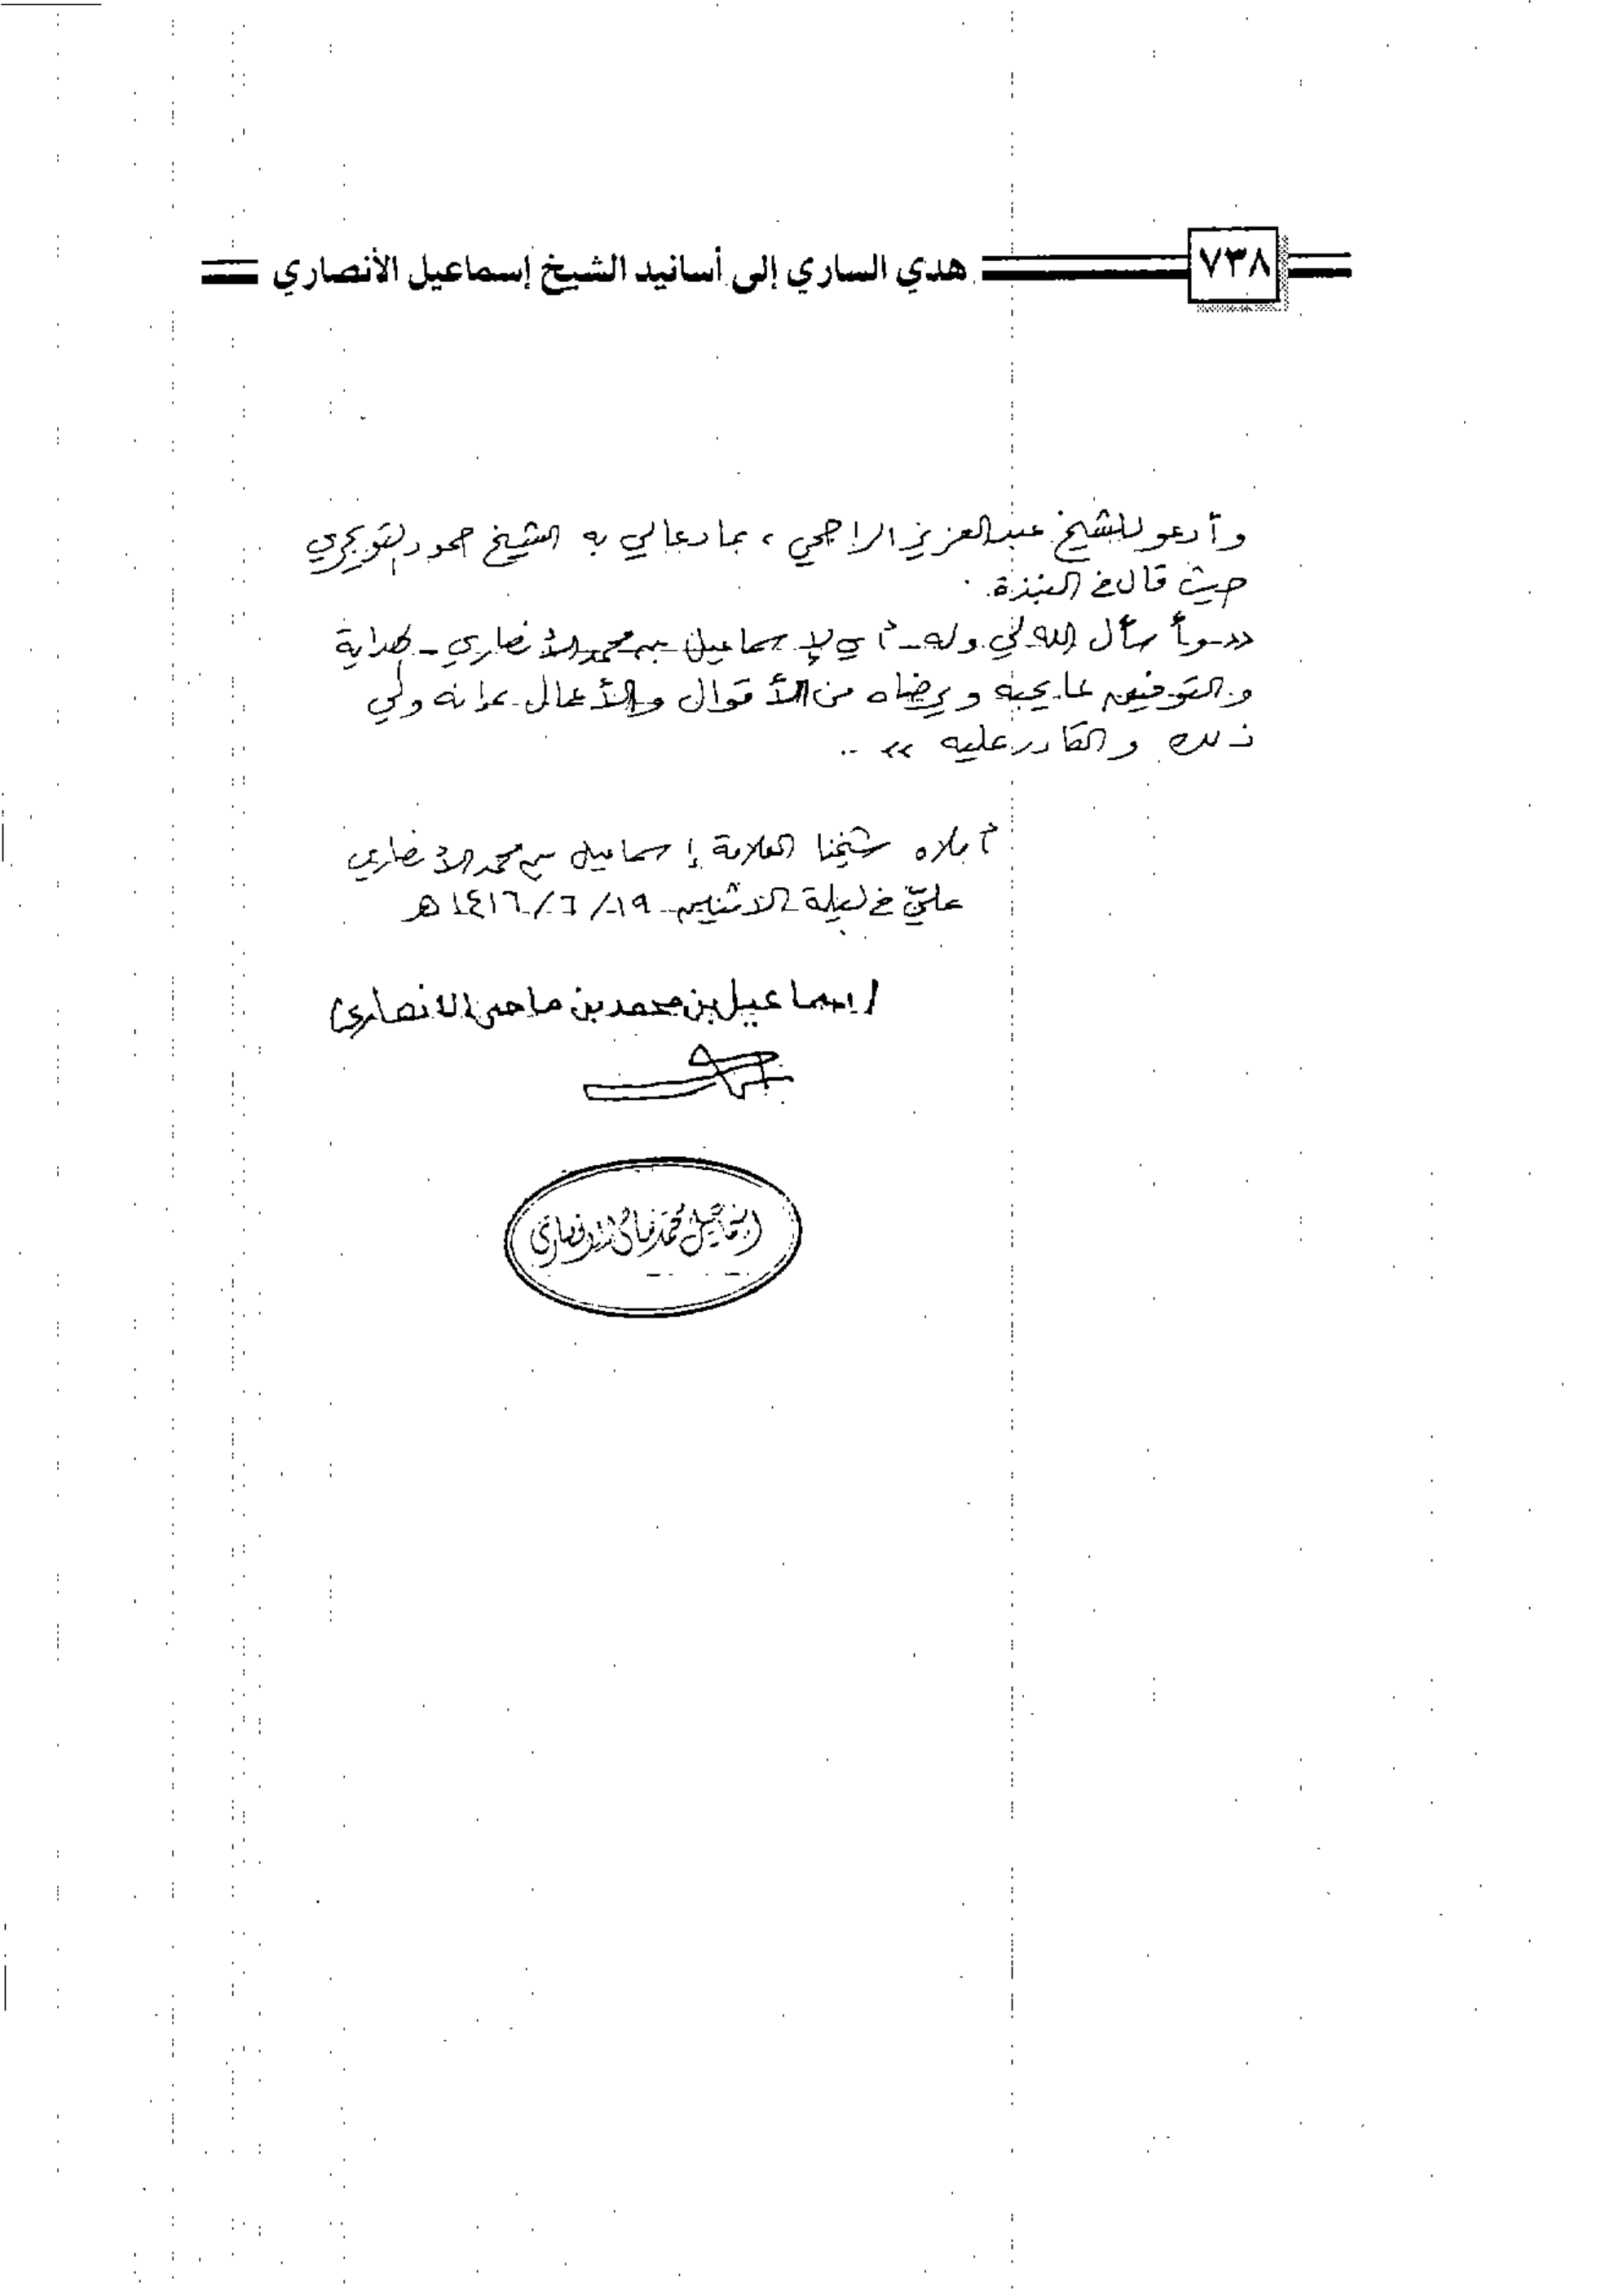 ٧٣٨
هدي الساري إلى أسانيد الشيخ إسماعيل الأنصاري
وأدعو للشيخ عبدالعزيز الراجحي ، بما دعا لي به الشيخ حمود التويجري
حيث قال في النبذة.
«وأسأل الله لي وله - أي لإسماعيل بن محمد الأنصاري - الهداية
والتوفيق لما يحبه ويرضاه من الأقوال والأعمال إنه ولي
ذلك والقادر عليه» ..
أملاه شيخنا العلامة إسماعيل بن محمد الأنصاري
عليّ في ليلة الاثنين ١٩/٦/١٤١٦هـ
إسماعيل بن محمد بن ماحي الانصاري
إسماعيل محمد ماحي الأنصاري